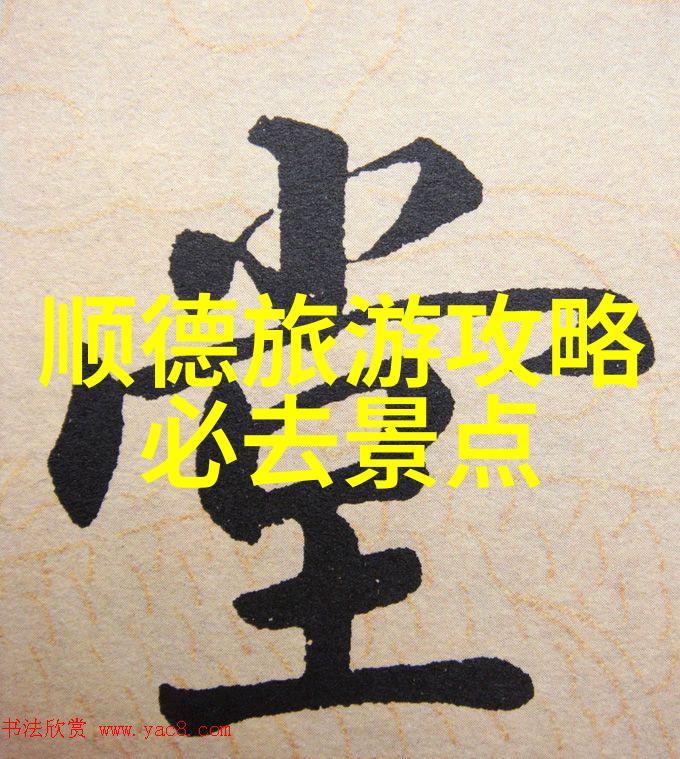 堂
顺德旅游攻略
必去景点
书法欣赏 www.yac8.com